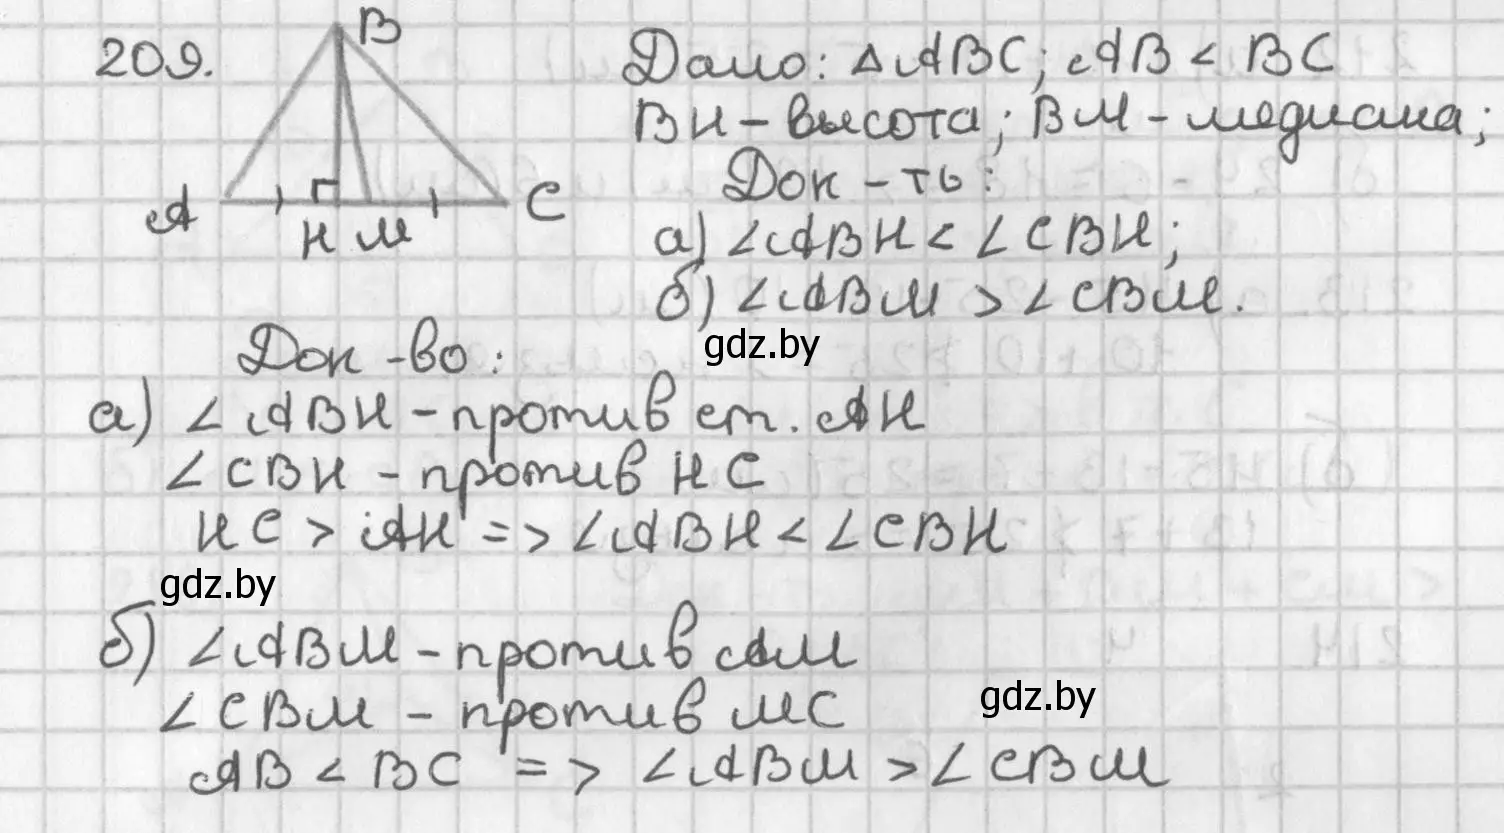 209.
B
A
H M
C
Дано: ΔABC; AB < BC
BH - высота; BM - медиана;
Док-ть:
а) ∠ABH < ∠CBH;
б) ∠ABM > ∠CBM.
gdz.by
Док-во:
а) ∠ABH - против ст. AH
∠CBH - против HC
HC > AH => ∠ABH < ∠CBH
gdz.by
б) ∠ABM - против AM
∠CBM - против MC
gdz.by
AB < BC => ∠ABM > ∠CBM